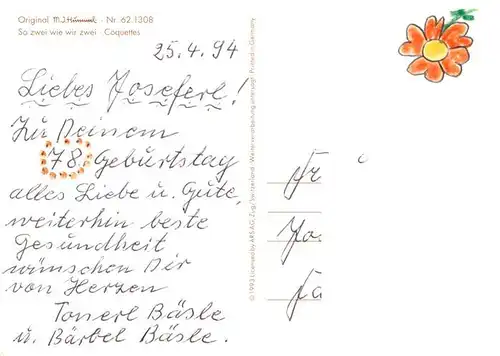 Original M.J.Hummel - Nr. 62.1308
So zwei wie wir zwei · Coquettes
25.4.94
Liebes Joseferl!
Zu Deinem
78. Geburtstag
alles Liebe u. Gute,
weiterhin beste
Gesundheit
wünschen Dir
von Herzen
Tonerl Bäsle
u. Bärbel Bäsle.
© 1993 Licensed by ARS AG, Zug/Switzerland · Weiterverarbeitung untersagt · Printed in Germany
Fr
Jo